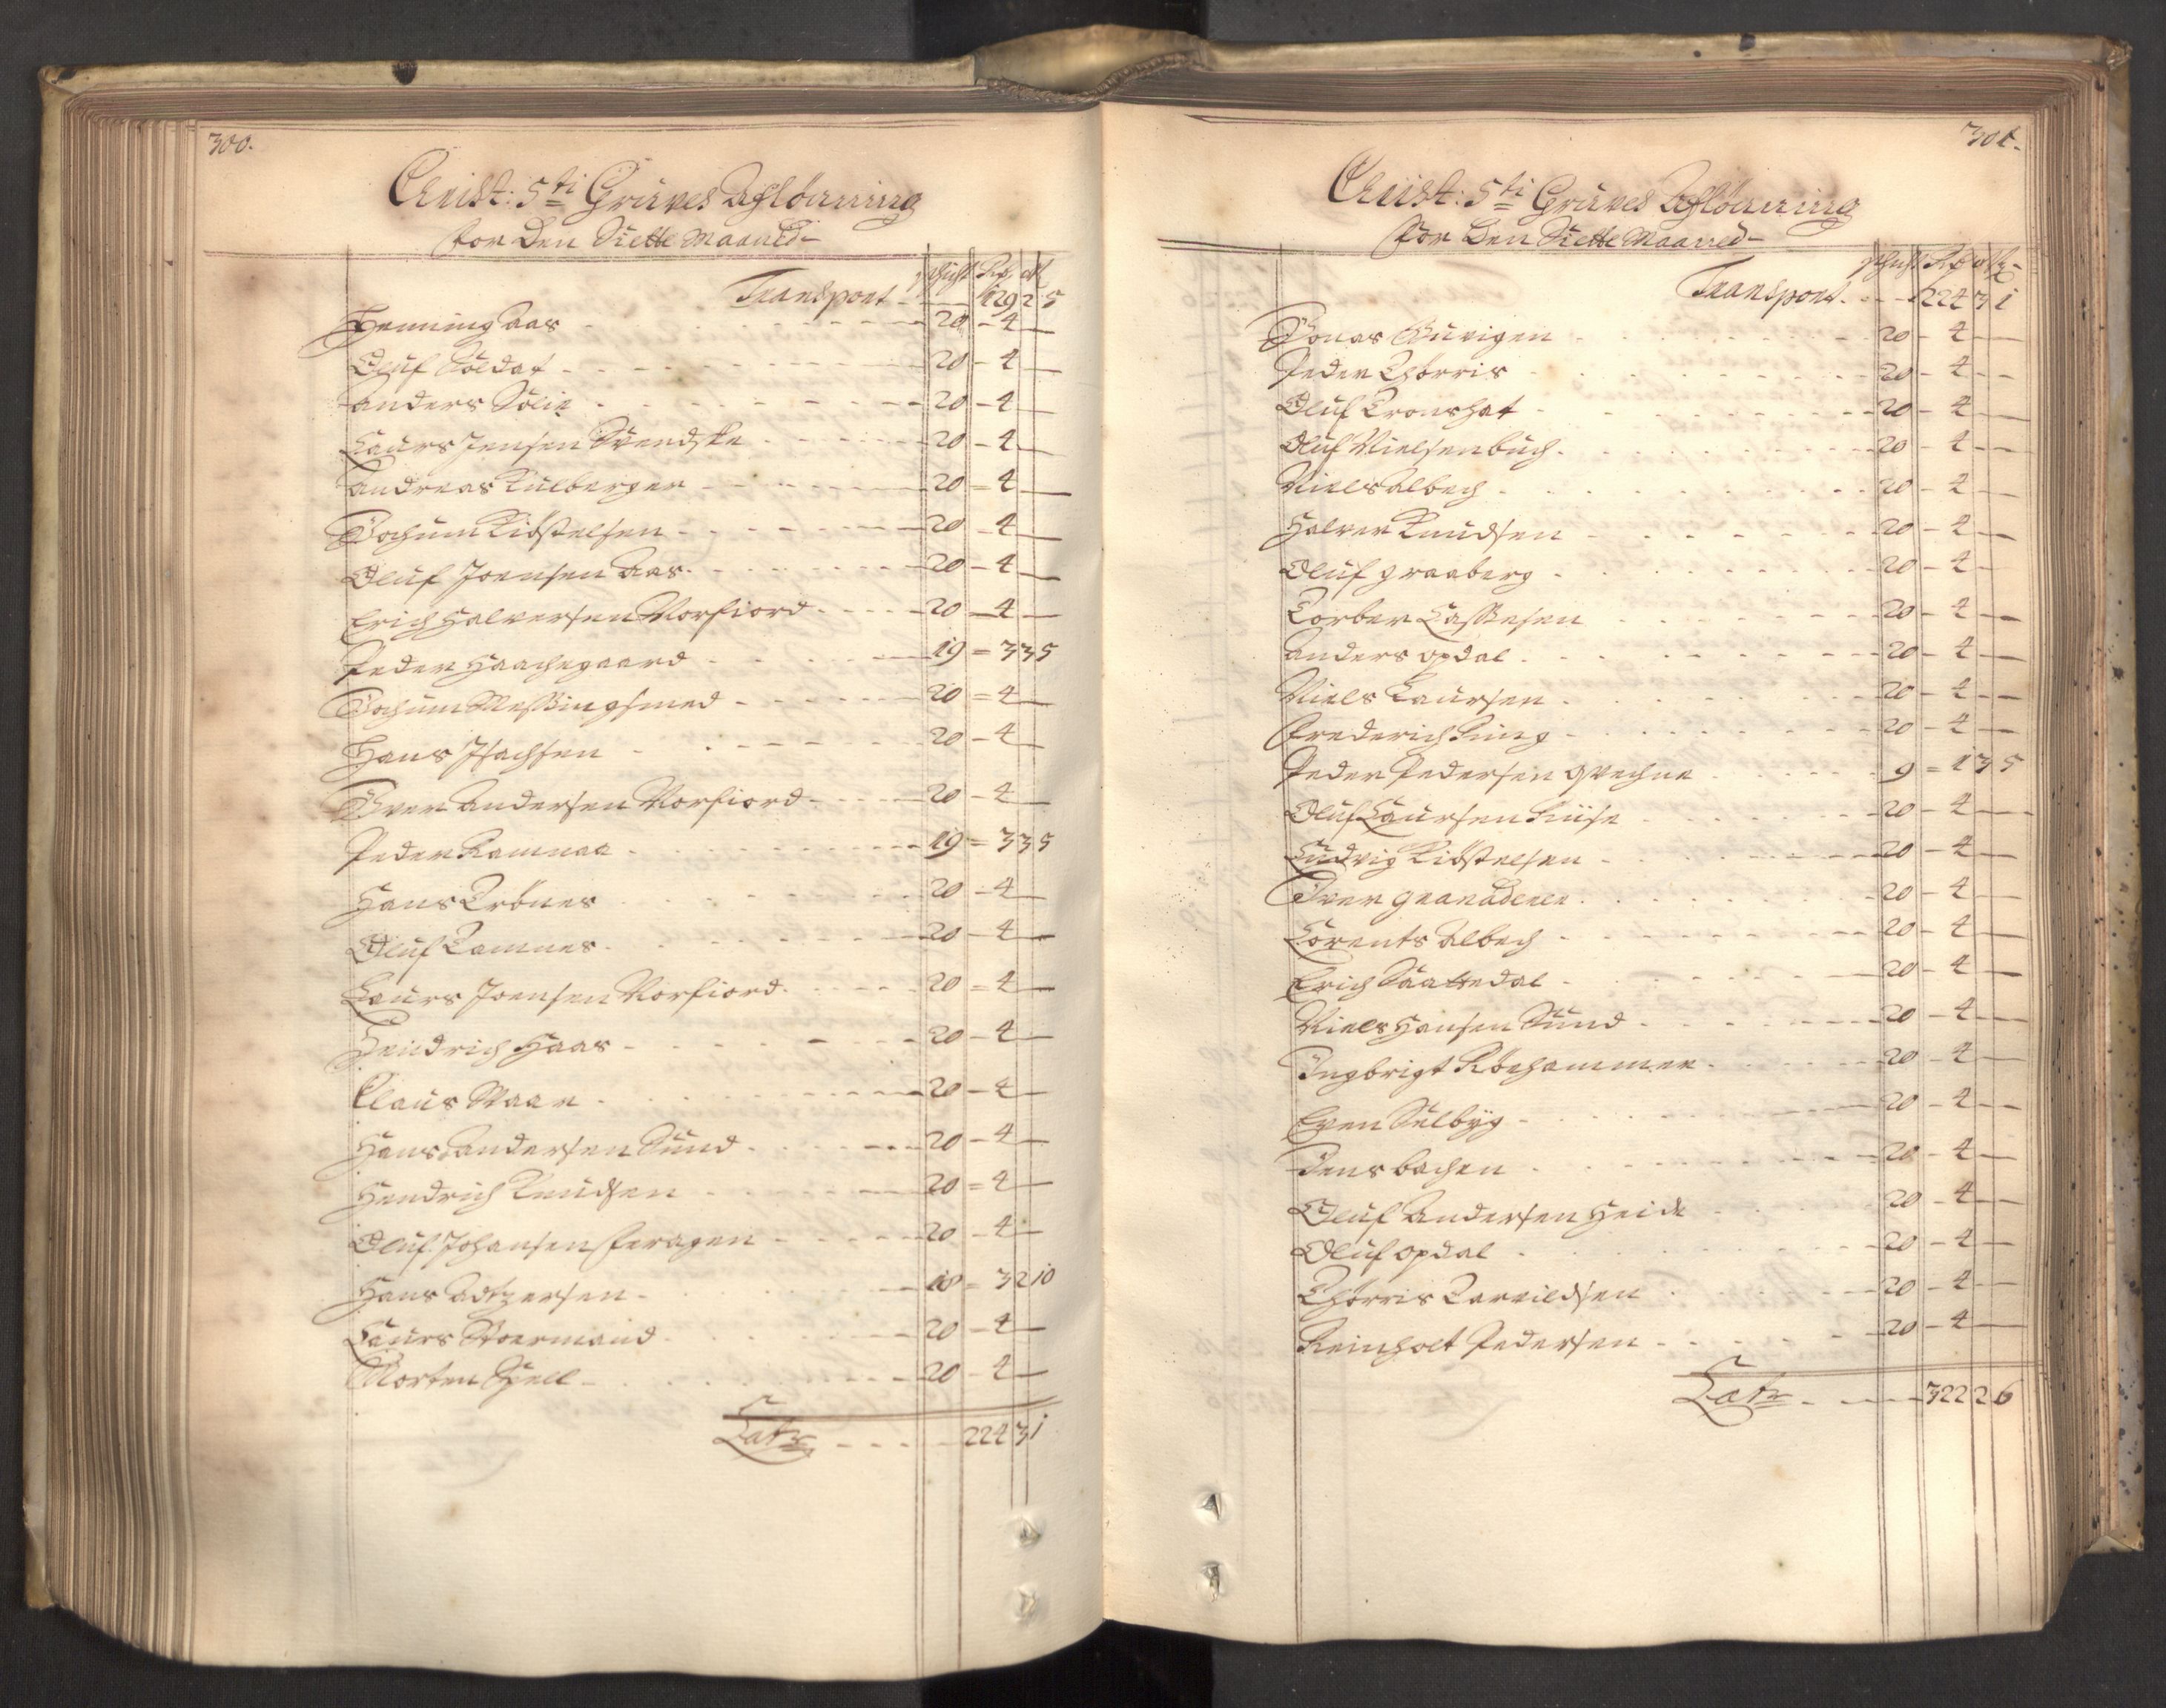 300.
Christ: 5ti Gruves Afflönning
for den Siette Maaned
schicht Rdr ort
Transport - 129 2 5
Henning Aas - 20 - 4 -
Oluf Soldat - 20 - 4 -
Anders Solie - 20 - 4 -
Laurs Jensen Svendske - 20 - 4 -
Andreas Kulberger - 20 - 4 -
Jochum Kiöstelsen - 20 - 4 -
Oluf Joensen Aas - 20 - 4 -
Erich Halversen Norfiord - 20 - 4 -
Peder Haachegaard - 19 = 3 3 5
Jochum Messingsmed - 20 = 4 -
Hans Isachsen - 20 - 4 -
Iver Andersen Norfiord - 20 - 4 -
Peder Kamnaa - 19 = 3 3 5
Hans Trönes - 20 - 4 -
Oluf Tamnes - 20 - 4 -
Laurs Joensen Norfiord - 20 = 4 -
Hendrich Haas - 20 - 4 -
Claus Maar - 20 - 4 -
Hans Andersen Sund - 20 - 4 -
Hendrich Knudsen - 20 = 4 -
Oluf Johansen Feragen - 20 - 4 -
Hans - 18 = 3 2 10
Laurs Stoermand - 20 - 4 -
Morten Spell - 20 - 4 -
Latr - 224 3 1
301.
Christ: 5ti Gruves Afflönning
for den Siette Maaned
schicht Rdr ort
Transport - 224 3 1
Jonas Gurigen - 20 - 4 -
Peder Thorris - 20 - 4 -
Oluf Tronshat - 20 - 4 -
Oluf Nielsen buch - 20 - 4 -
Niels Albech - 20 - 4 -
Halver Knudsen - 20 - 4 -
Oluf graaberg - 20 - 4 -
Torber Lassesen - 20 - 4 -
Anders opdal - 20 - 4 -
Niels Laursen - 20 - 4 -
Frederich Ring - 20 - 4 -
Peder Pedersen qvechne - 9 = 1 3 5
Oluf Laursen Kiise - 20 - 4 -
Ludvig Kiöstelsen - 20 - 4 -
Iver granaderer - 20 - 4 -
Lorents Albech - 20 - 4 -
Erich Saattedal - 20 - 4 -
Niels Hansen Sund - 20 - 4 -
Ingbrigt Röehammer - 20 - 4 -
Even Sulbyg - 20 - 4 -
Jens bachen - 20 - 4 -
Oluf Andersen Heide - 20 - 4 -
Oluf opdal - 20 - 4 -
Thorris Tarvildsen - 20 - 4 -
Reinholt Pedersen - 20 - 4 -
Latr - 322 2 6